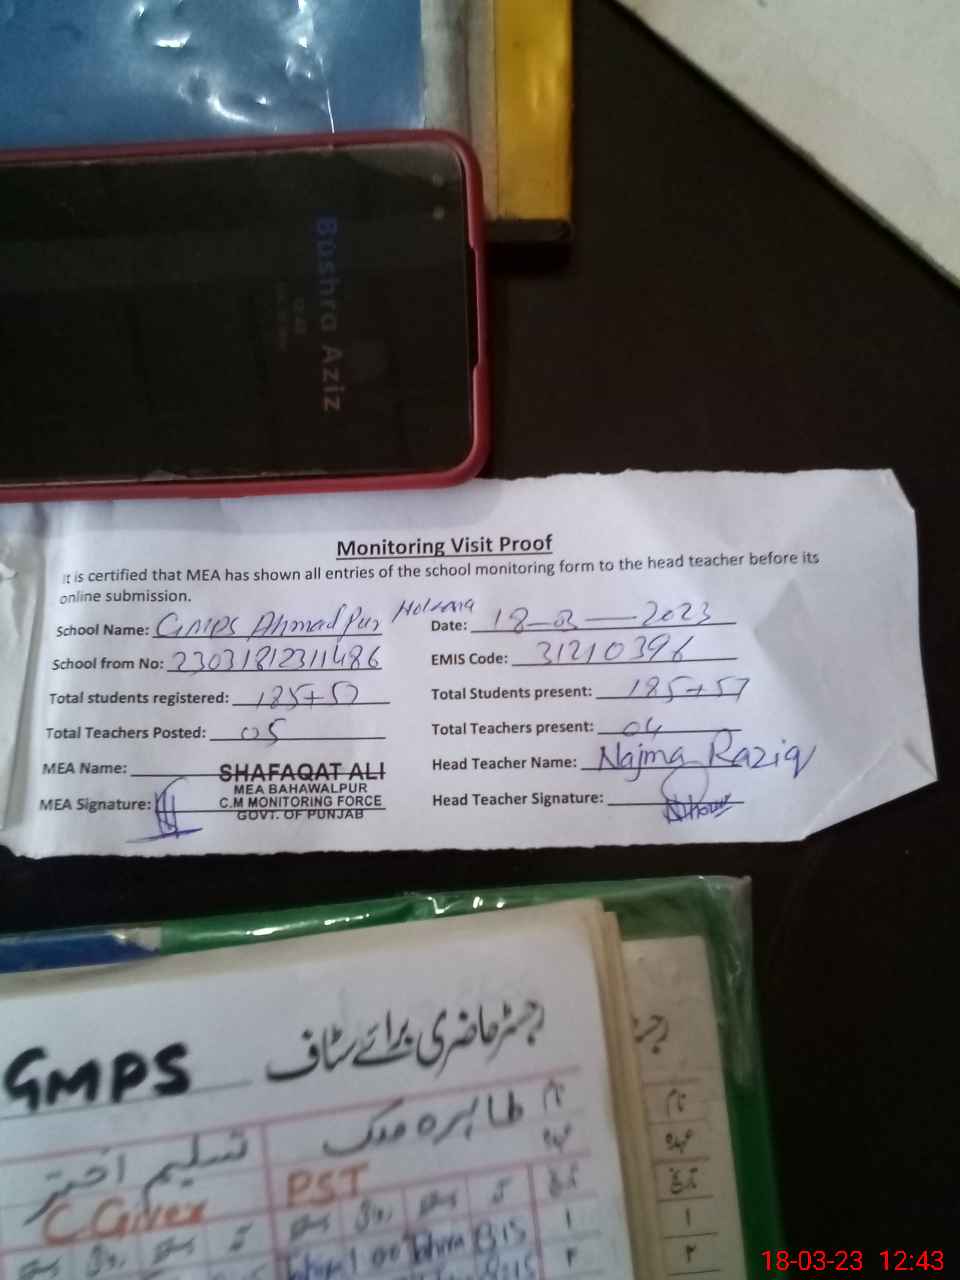 Bushra Aziz
Monitoring Visit Proof
It is certified that MEA has shown all entries of the school monitoring form to the head teacher before its
online submission.
School Name: GMPS Ahmad Pur
Date: 18-03-2023
School from No: 23031812311486
EMIS Code: 31210396
Total students registered: 185+57
Total Students present: 185+57
Total Teachers Posted: 05
Total Teachers present: 04
MEA Name: SHAFAQAT ALI
MEA BAHAWALPUR
C.M MONITORING FORCE
GOVT. OF PUNJAB
Head Teacher Name: Najma Raziq
MEA Signature:
Head Teacher Signature:
رجسٹر حاضری برائے سٹاف
GMPS
نام
طاہرہ ملک
تسلیم اختر
عہدہ
PST
تاریخ
۱
۲
نام
عہدہ
تاریخ
۱
۲
18-03-23 12:43